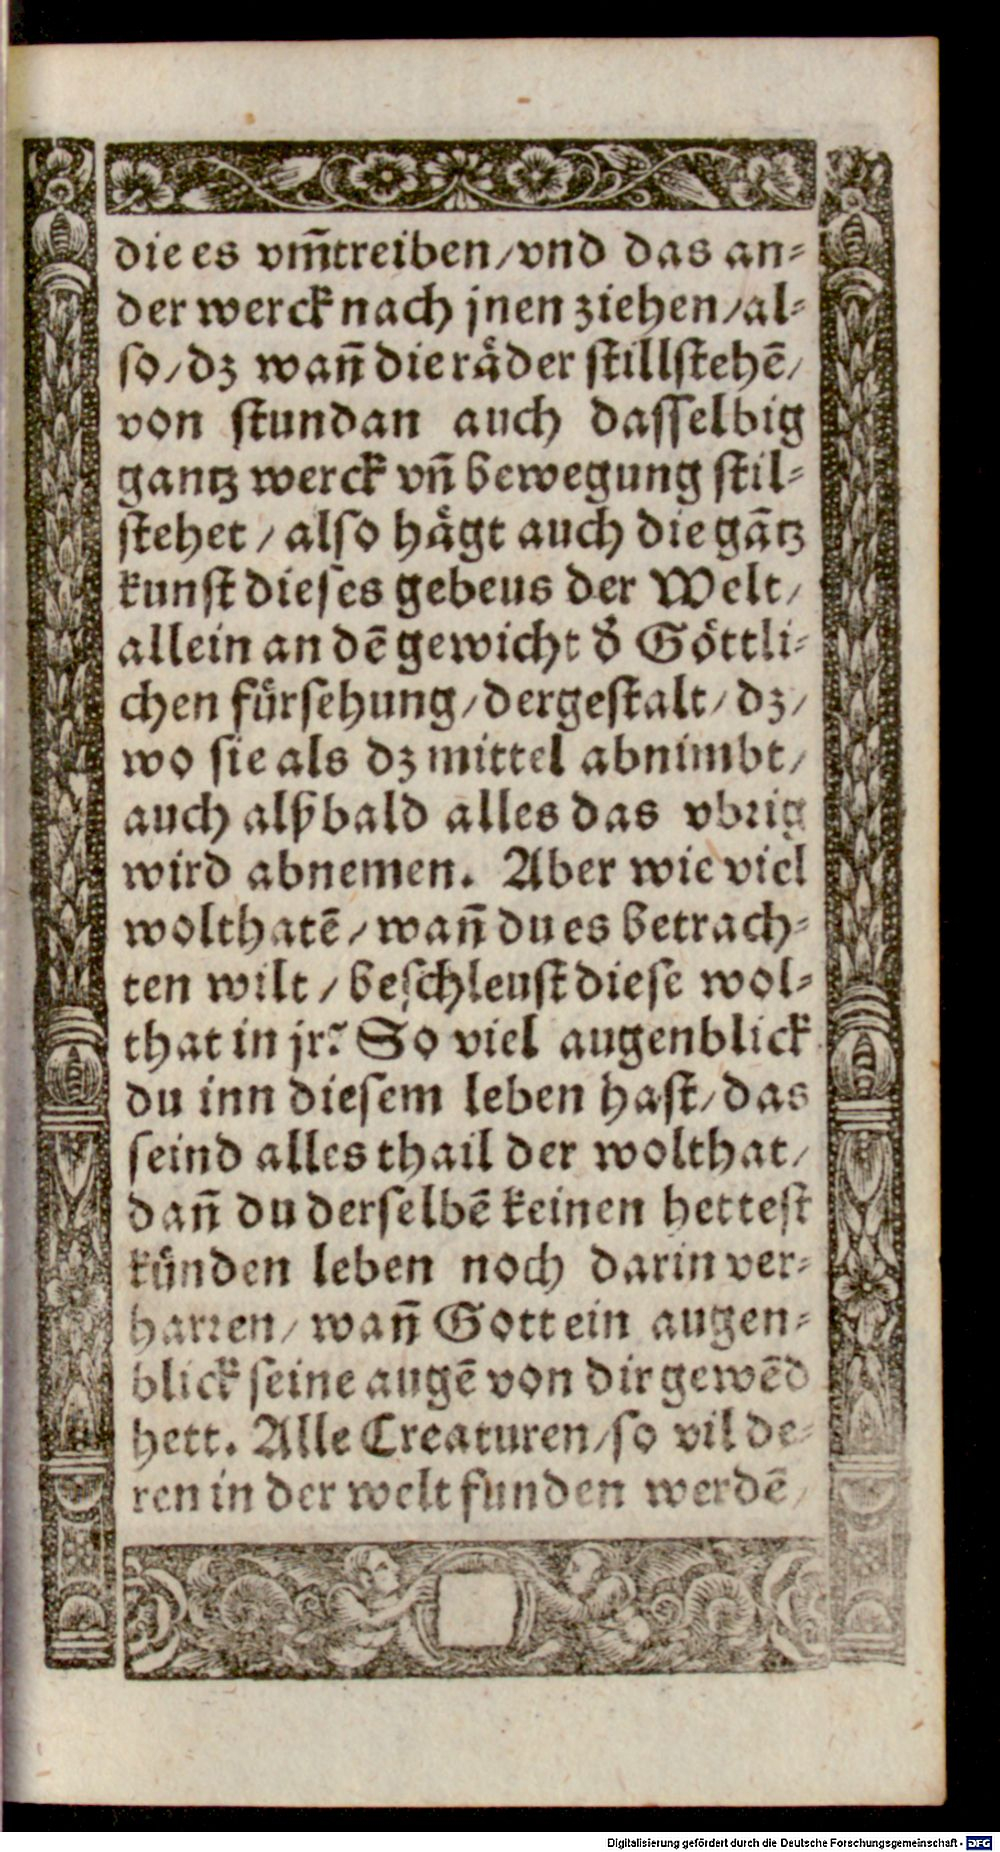 die es vm̃treiben/vnd das an-
der werck nach jnen ziehen/al-
so/dz wañ die räder stillstehē/
von stundan auch dasselbig
gantz werck vñ bewegung stil-
stehet/also hägt auch die gātz
kunst dieses gebeus der Welt/
allein an dē gewicht d' Göttli-
chen fürsehung/dergestalt/dz/
wo sie als dz mittel abnimbt/
auch alßbald alles das vbrig
wird abnemen. Aber wie viel
wolthatē/wañ du es betrach-
ten wilt/beschleust diese wol-
that in jr? So viel augenblick
du inn diesem leben hast/das
seind alles thail der wolthat/
dañ du derselbē keinen hettest
künden leben noch darin ver-
harren/wañ Gott ein augen-
blick seine augē von dir gewēd
hett. Alle Creaturen/so vil de-
ren in der welt funden werdē/
Digitalisierung gefördert durch die Deutsche Forschungsgemeinschaft - DFG